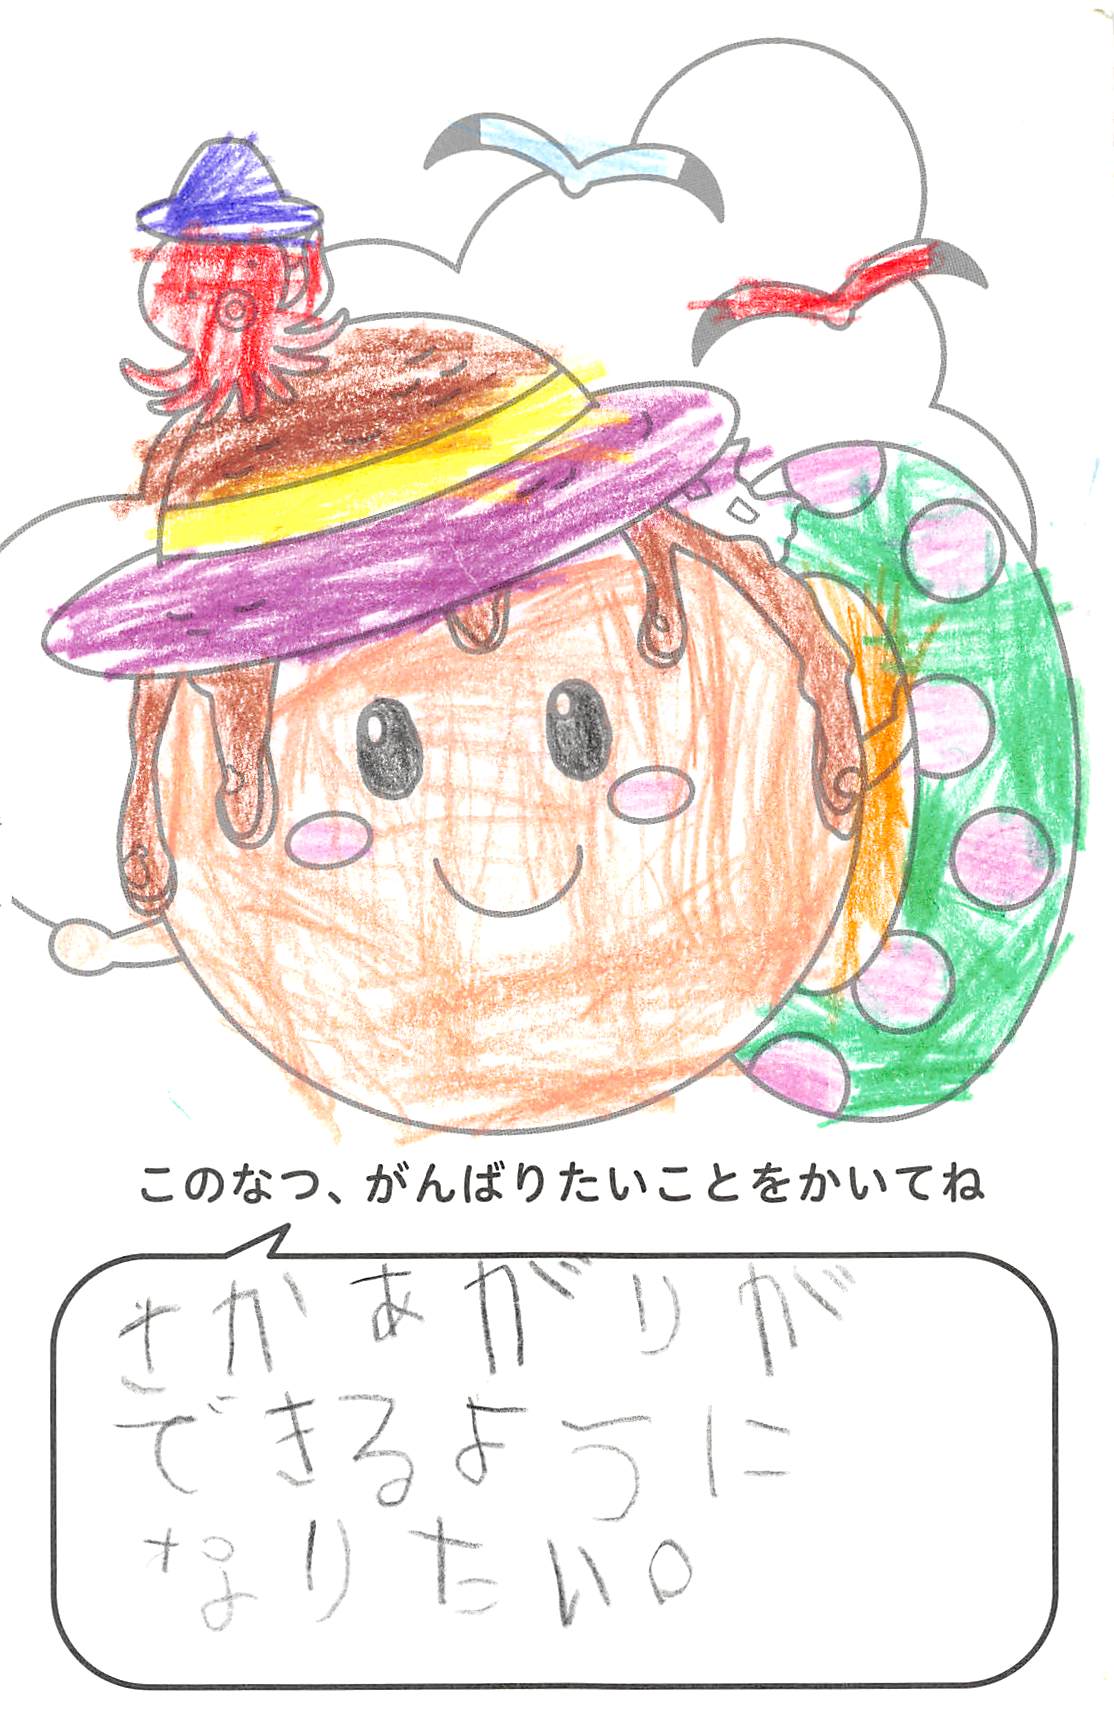 このなつ、がんばりたいことをかいてね
さかあがりが
できるように
なりたい。